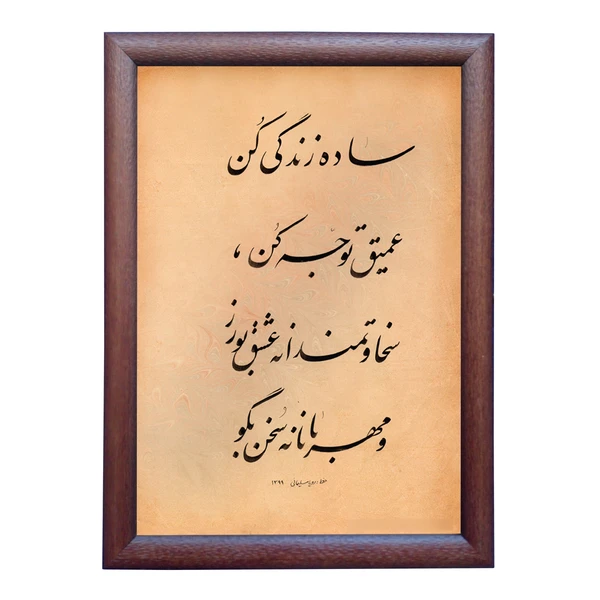 ساده زندگی کُن
عمیق توجّه کُن ،
سخاوتمندانه عشق بورز
و مهربانانه سُخن بگو
۱۳۹۹